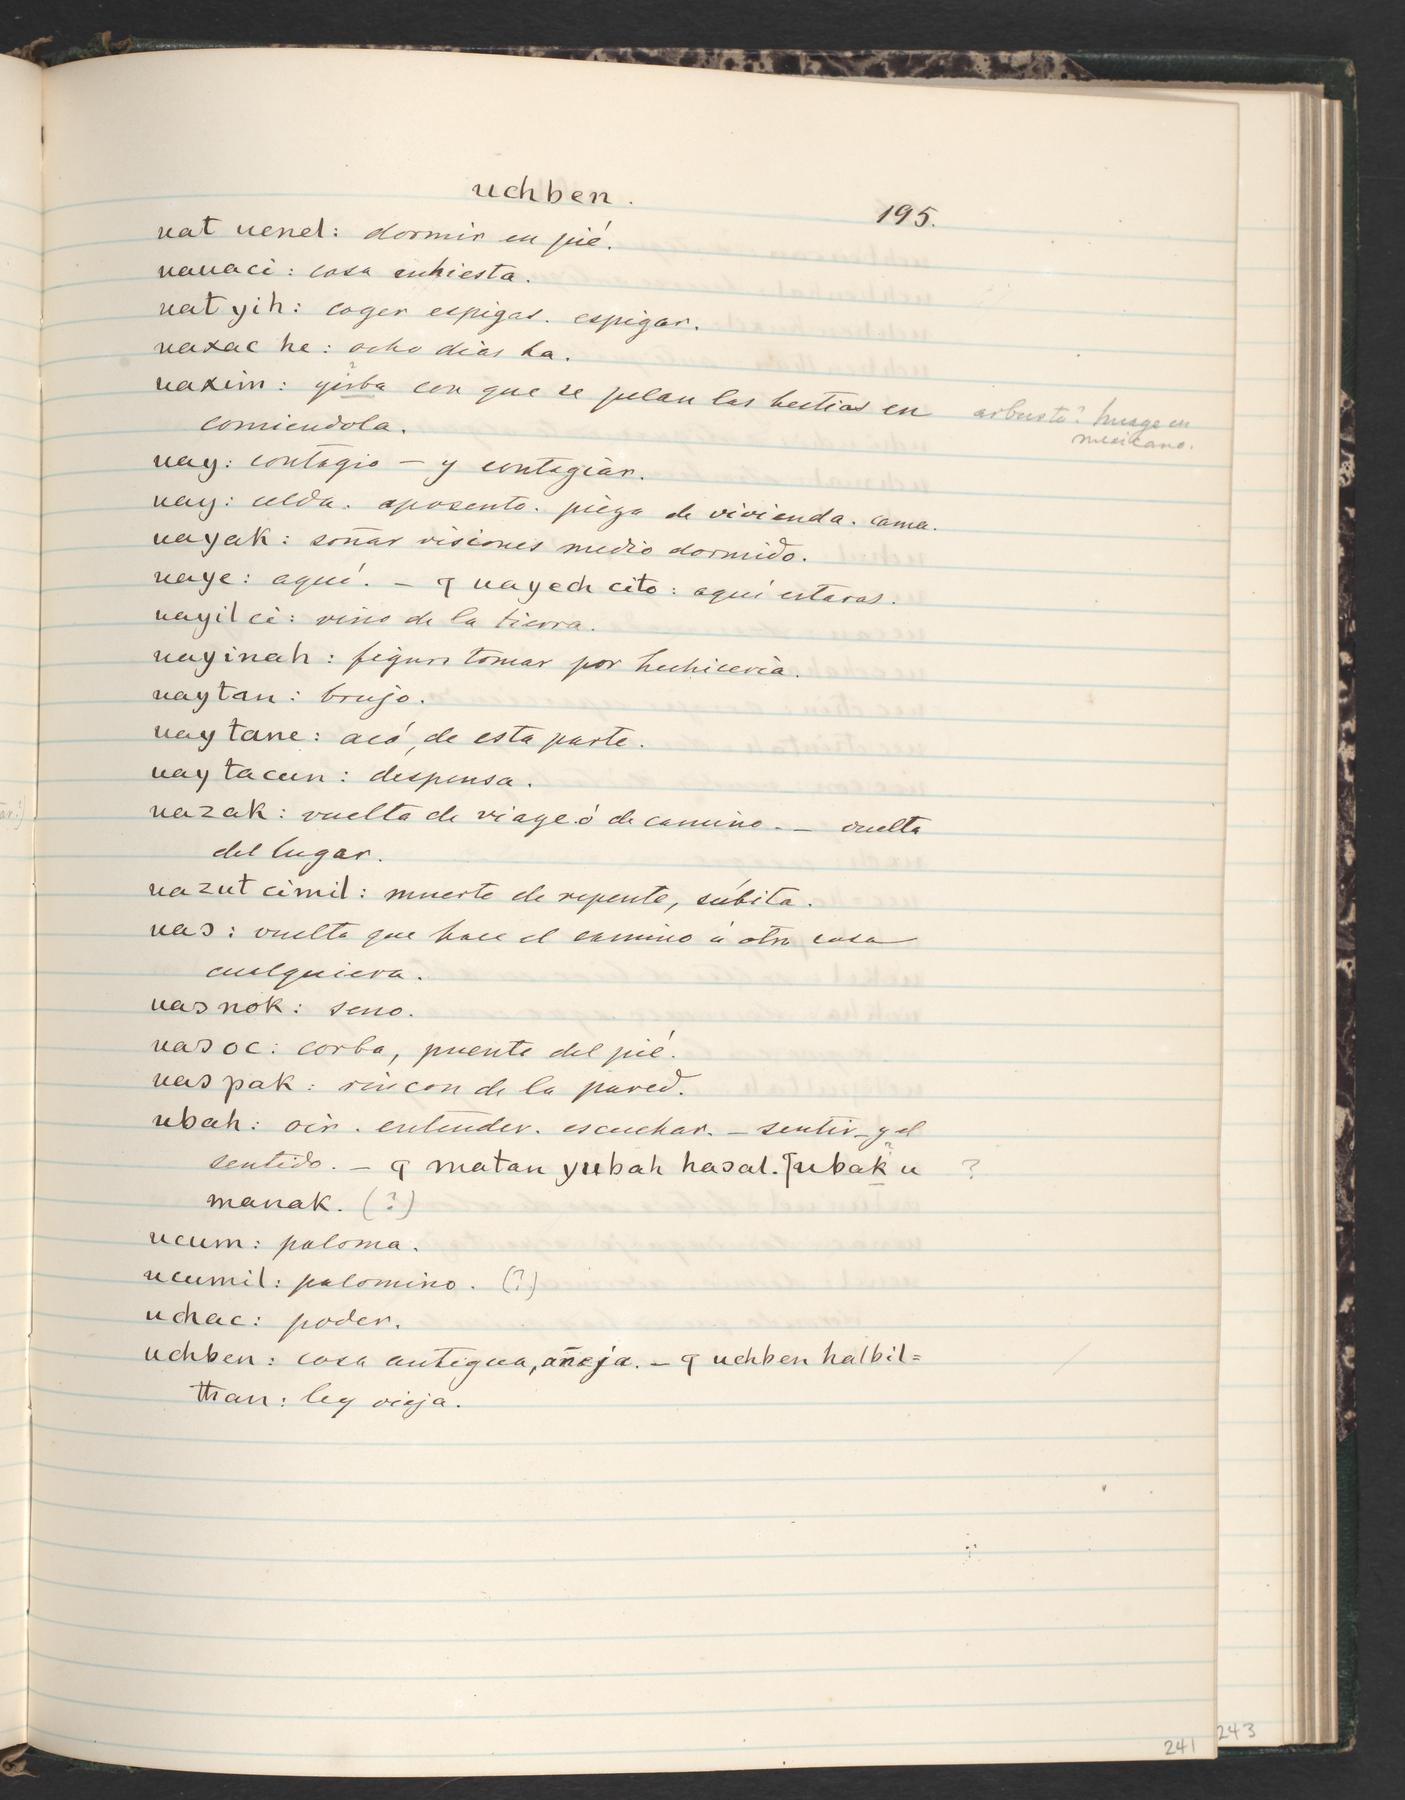 uchben.
195.
uat uenel: dormir en pié.
uauaci: cosa enhiesta.
uat yih: coger espigas. espigar.
uaxac he: ocho dias ha.
uaxim: yerba con que se pelan las bestias en
comiendola.
arbusto? huage en
mexicano.
uay: contagio – y contagiar.
uay: celda. aposento. pieza de vivienda. cama.
uayak: soñar visiones medio dormido.
uaye: aquí. – ꟼ uayech cito: aquí estaras.
uayil ci: vino de la tierra.
uayinah: figura tomar por hechiceria.
uaytan: brujo.
uaytane: acá, de esta parte.
uaytacun: despensa.
uazak: vuelta de viage ó de camino. – vuelta
del lugar.
uazut cimil: muerte de repente, súbita.
uaɔ: vuelta que hace el camino ú otra cosa
cualquiera.
uaɔnok: seno.
uaɔoc: corba, puente del pié.
uaɔpak: rincon de la pared.
ubah: oir. entender. escuchar. – sentir – y el
sentido. – ꟼ matan yubah haɔal. ꟼ ubak u ?
manak. (?)
ucum: paloma.
ucumil: palomino. (?)
uchac: poder.
uchben: cosa antigua, añeja. – ꟼ uchben halbil=
than: ley vieja.
241
243